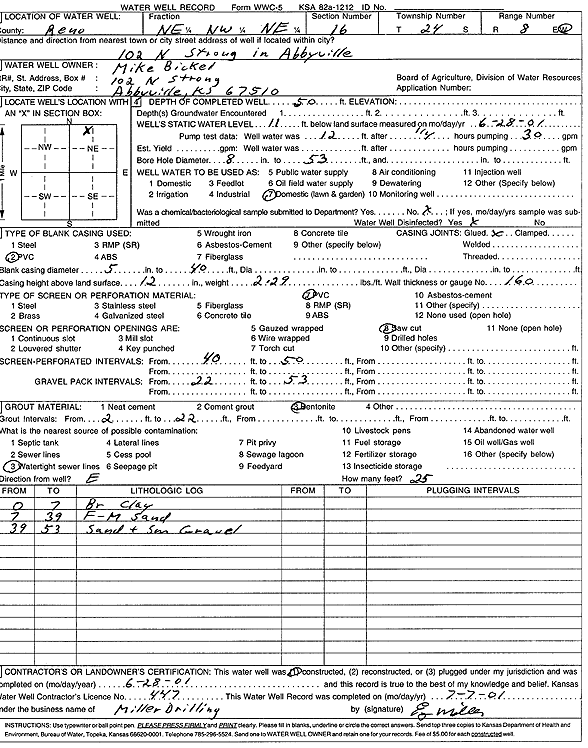 WATER WELL RECORD Form WWC-5 KSA 82a-1212 ID No.
LOCATION OF WATER WELL: Fraction Section Number Township Number Range Number
County: Reno NE ¼ NW ¼ NE ¼ 16 T 24 S R 8 E/W
Distance and direction from nearest town or city street address of well if located within city?
102 N Strong in Abbyville
WATER WELL OWNER: Mike Bickel
RR#, St. Address, Box # : 102 N Strong Board of Agriculture, Division of Water Resources
City, State, ZIP Code : Abbyville, KS 67510 Application Number:
LOCATE WELL'S LOCATION WITH 4 DEPTH OF COMPLETED WELL 50 ft. ELEVATION:
AN "X" IN SECTION BOX: Depth(s) Groundwater Encountered 1. ft. 2. ft. 3. ft.
N X WELL'S STATIC WATER LEVEL 11 ft. below land surface measured on mo/day/yr 6-28-01
Pump test data: Well water was 12 ft. after 1/4 hours pumping 30 gpm
NW NE Est. Yield gpm: Well water was ft. after hours pumping gpm
Bore Hole Diameter 8 in. to 53 ft., and in. to ft.
Mile W E WELL WATER TO BE USED AS: 5 Public water supply 8 Air conditioning 11 Injection well
1 Domestic 3 Feedlot 6 Oil field water supply 9 Dewatering 12 Other (Specify below)
SW SE 2 Irrigation 4 Industrial 7 Domestic (lawn & garden) 10 Monitoring well
Was a chemical/bacteriological sample submitted to Department? Yes No X ; If yes, mo/day/yrs sample was sub-
S mitted Water Well Disinfected? Yes X No
TYPE OF BLANK CASING USED: 5 Wrought iron 8 Concrete tile CASING JOINTS: Glued X Clamped
1 Steel 3 RMP (SR) 6 Asbestos-Cement 9 Other (specify below) Welded
2 PVC 4 ABS 7 Fiberglass Threaded
Blank casing diameter 5 in. to 40 ft., Dia in. to ft., Dia in. to ft.
Casing height above land surface 12 in., weight 2.29 lbs./ft. Wall thickness or gauge No. 160
TYPE OF SCREEN OR PERFORATION MATERIAL: 7 PVC 10 Asbestos-cement
1 Steel 3 Stainless steel 5 Fiberglass 8 RMP (SR) 11 Other (specify)
2 Brass 4 Galvanized steel 6 Concrete tile 9 ABS 12 None used (open hole)
SCREEN OR PERFORATION OPENINGS ARE: 5 Gauzed wrapped 8 Saw cut 11 None (open hole)
1 Continuous slot 3 Mill slot 6 Wire wrapped 9 Drilled holes
2 Louvered shutter 4 Key punched 7 Torch cut 10 Other (specify) ft.
SCREEN-PERFORATED INTERVALS: From 40 ft. to 50 ft., From ft. to ft.
From ft. to ft., From ft. to ft.
GRAVEL PACK INTERVALS: From 22 ft. to 53 ft., From ft. to ft.
From ft. to ft., From ft. to ft.
GROUT MATERIAL: 1 Neat cement 2 Cement grout 3 Bentonite 4 Other
Grout Intervals: From 2 ft. to 22 ft., From ft. to ft., From ft. to ft.
What is the nearest source of possible contamination: 10 Livestock pens 14 Abandoned water well
1 Septic tank 4 Lateral lines 7 Pit privy 11 Fuel storage 15 Oil well/Gas well
2 Sewer lines 5 Cess pool 8 Sewage lagoon 12 Fertilizer storage 16 Other (specify below)
3 Watertight sewer lines 6 Seepage pit 9 Feedyard 13 Insecticide storage
Direction from well? E How many feet? 25
FROM TO LITHOLOGIC LOG FROM TO PLUGGING INTERVALS
0 7 Br Clay
7 39 F-M Sand
39 53 Sand + Sm Gravel
CONTRACTOR'S OR LANDOWNER'S CERTIFICATION: This water well was (1) constructed, (2) reconstructed, or (3) plugged under my jurisdiction and was
completed on (mo/day/year) 6-28-01 and this record is true to the best of my knowledge and belief. Kansas
Water Well Contractor's Licence No. 447 This Water Well Record was completed on (mo/day/yr) 7-7-01
under the business name of Miller Drilling by (signature)
INSTRUCTIONS: Use typewriter or ball point pen. PLEASE PRESS FIRMLY and PRINT clearly. Please fill in blanks, underline or circle the correct answers. Send top three copies to Kansas Department of Health and
Environment, Bureau of Water, Topeka, Kansas 66620-0001. Telephone 785-296-5524. Send one to WATER WELL OWNER and retain one for your records. Fee of $5.00 for each constructed well.